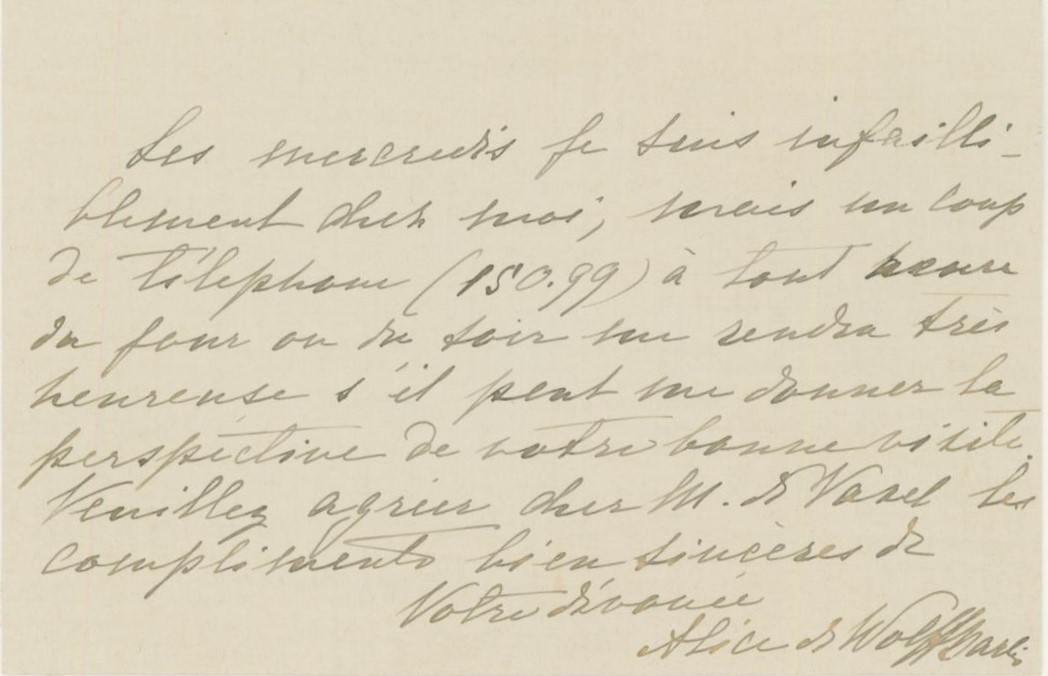 Les mercredis je suis infailli-
blement chez moi, mais un coup
de téléphone (150.99) à tout heure
du jour ou du soir me rendra très
heureuse s'il peut me donner la
perspective de votre bonne visite.
Veuillez agréer cher M. de Vasel les
compliments bien sincères de
Votre dévouée
Alice de Wolff